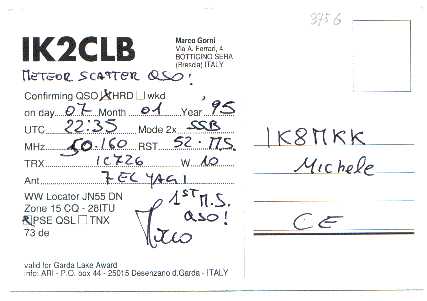 3756
IK2CLB
Marco Gorni
Via A. Ferrari, 4
BOTTICINO SERA
(Brescia) ITALY
METEOR SCATTER QSO!
Confirming QSO HRD wkd
on day 07 Month 01 Year 95
UTC 22:35 Mode 2x SSB
MHz 50.160 RST 52 M.S.
TRX IC726 W 10
Ant 7 EL YAGI
WW Locator JN55 DN
Zone 15 CQ - 28ITU
PSE QSL TNX
73 de
1ST M.S.
QSO!
IK8MKK
Michele
CE
valid for Garda Lake Award
info: ARI - P.O. box 44 - 25015 Desenzano d.Garda - ITALY